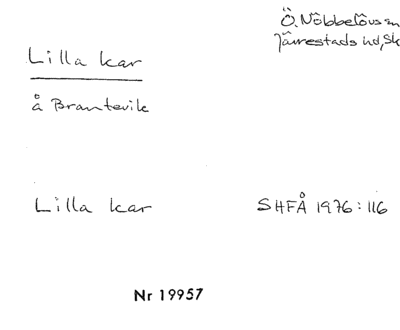 Ö. Nöbbelövs sn
Järrestads hd, Sk
Lilla kar
å Brantevik
Lilla kar SHFÅ 1976:116
Nr 19957